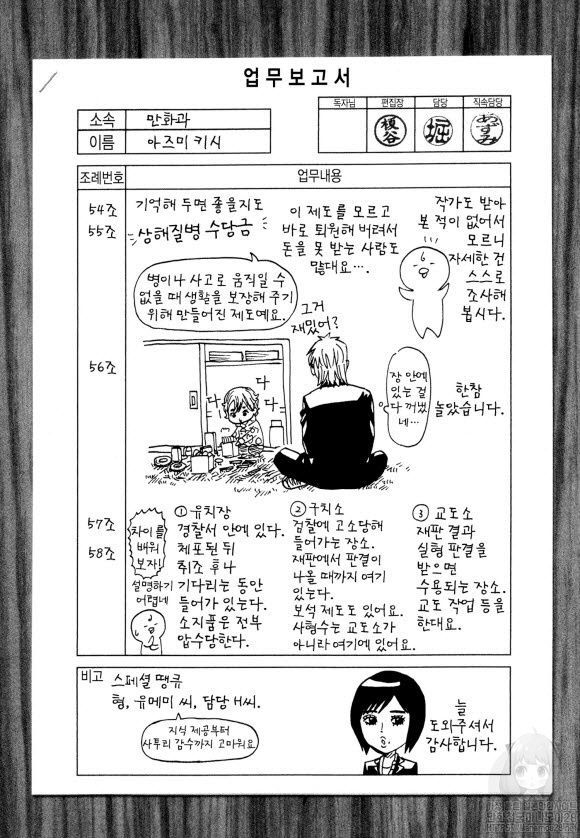 업무보고서
독자님 편집장 담당 직속담당
榎谷 堀 あずみ
소속 만화과
이름 아즈미 키시
조례번호 업무내용
54조
55조
기억해 두면 좋을지도
상해질병 수당금
이 제도를 모르고
바로 퇴원해 버려서
돈을 못 받는 사람도
많대요….
작가도 받아
본 적이 없어서
모르니
자세한 건
스스로
조사해
봅시다.
병이나 사고로 움직일 수
없을 때 생활을 보장해 주기
위해 만들어진 제도예요.
56조
그거
재밌어?
다
다
다
장 안에
있는 걸
다 꺼냈
네…
한참
놀았습니다.
57조
58조
차이를
배워
보자!
설명하기
어렵네
① 유치장
경찰서 안에 있다.
체포된 뒤
취조 후나
기다리는 동안
들어가 있는다.
소지품은 전부
압수당한다.
② 구치소
검찰에 고소당해
들어가는 장소.
재판에서 판결이
나올 때까지 여기
있는다.
보석 제도도 있어요.
사형수는 교도소가
아니라 여기에 있어요.
③ 교도소
재판 결과
실형 판결을
받으면
수용되는 장소.
교도 작업 등을
한대요.
비고
스페셜 땡큐
형, 유메미 씨, 담당 H씨.
지식 제공부터
사투리 감수까지 고마워요
늘
도와주셔서
감사합니다.